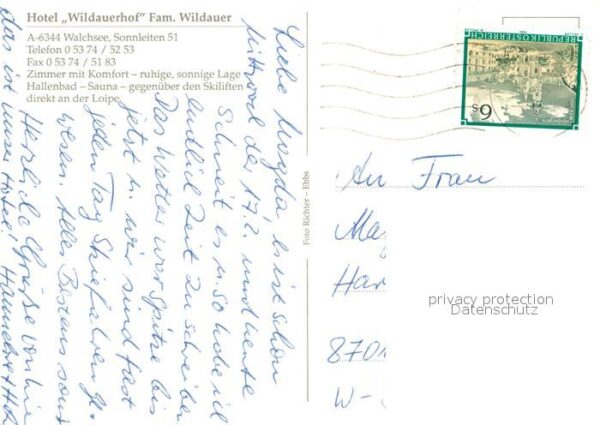 Hotel „Wildauerhof" Fam. Wildauer
A-6344 Walchsee, Sonnleiten 51
Telefon 0 53 74 / 52 53
Fax 0 53 74 / 51 83
Zimmer mit Komfort – ruhige, sonnige Lage
Hallenbad – Sauna – gegenüber den Skiliften
direkt an der Loipe
Liebe Magda es ist schon
Mittwoch der 17.2. und heute
Schneit es u. so habe ich
endlich Zeit zu schreiben
Das Wetter war Spitze bis
jetzt u. wir sind fast
jeden Tag Skifahren ge-
wesen. Alles Bestens sonst
Herzliche Grüße von hier
das ist unser Hotel! Hannelore +
Foto Richter – Ebbs
REPUBLIK ÖSTERREICH
6 S
An Frau
Ma
Har
8701
W-
privacy protection
Datenschutz